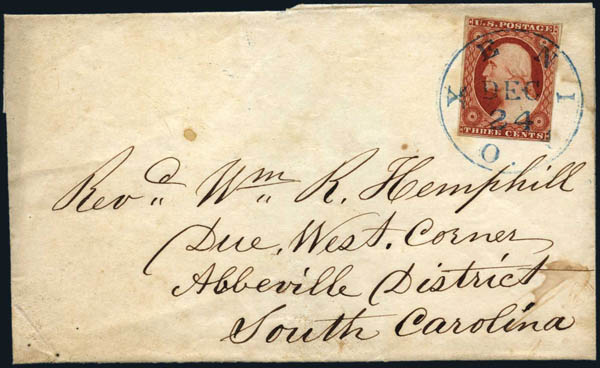 U.S. POSTAGE
XENIA
DEC
24
O.
THREE CENTS
Revd. Wm. R. Hemphill
Due, West, Corner
Abbeville District
South Carolina